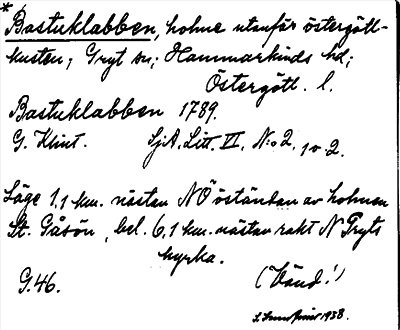 * Bastuklabben, holme utanför östergötl-
kusten, Gryt sn; Hammarkinds hd;
Östergötl. l.
Bastuklabben 1789.
G. Klint. SjA, Litt. VI, N:o 2, 1 o. 2.
Läge 1,1 km. nästan NÖ öständan av holmen
St. Gåsön, bel. 6,1 km. nästan rakt N Gryts
kyrka.
G.46. (Vänd!)
1938.